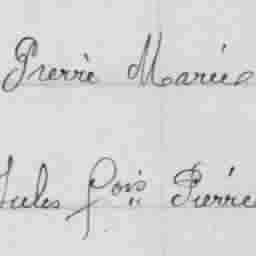 Pierre Marie
Jules fçois Pierre